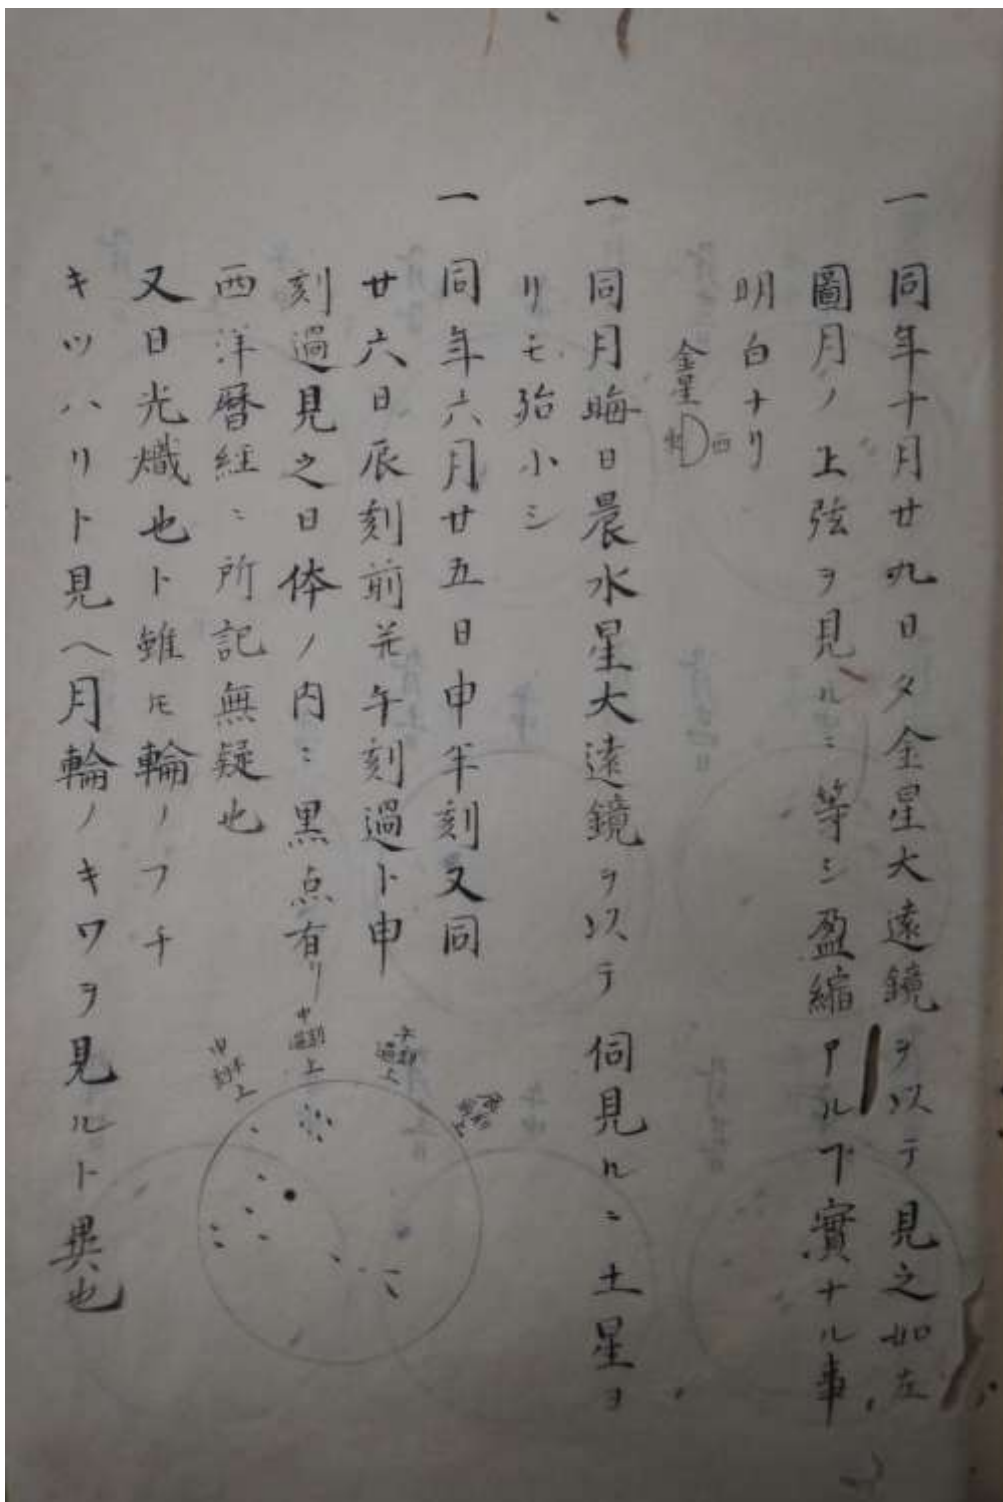 一 同年十月廿九日夕金星大遠鏡ヲ以テ見之如左
圖月ノ上弦ヲ見ルニ等シ盈縮アルヿ實ナル事
明白ナリ
金星
西
一 同月晦日晨水星大遠鏡ヲ以テ伺見ルニ土星ヨ
リモ殆小シ
一 同年六月廿五日申半刻又同
廿六日辰刻前并午刻過ト申
刻過見之日体ノ内ニ黒点有リ
西洋暦経ニ所記無疑也
又日光熾也ト雖𪜈輪ノフチ
キツハリト見ヘ月輪ノキワヲ見ルト異也